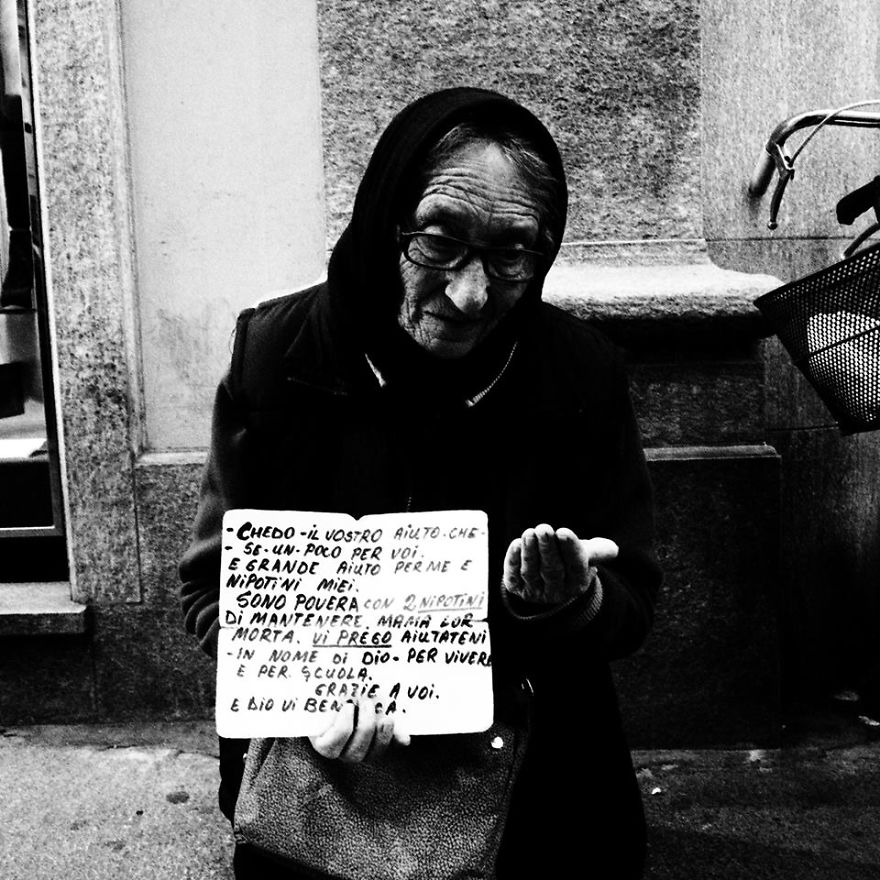 - CHEDO - IL VOSTRO AIUTO. CHE -
- SE - UN - POCO PER VOI.
E GRANDE AIUTO PER ME E
NIPOTINI MIEI.
SONO POUERA CON 2 NIPOTINI
DI MANTENERE. MAMA LOR
MORTA. VI PREGO AIUTATENI
- IN NOME DI DIO - PER VIVERE
E PER SCUOLA.
GRAZIE A VOI.
E DIO VI